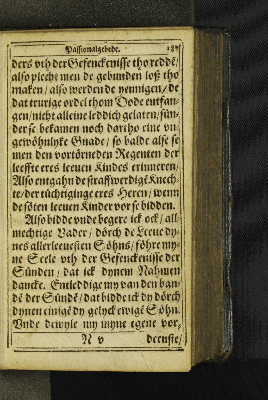 Passionalgebede. 189
ders vth der Gefenckenisse tho redde/
also plecht men de gebunden loß tho
maken/ also werden de yennigen/ de
dat trurige ordel thom Dode entfan-
gen/ nicht alleine leddich gelaten/ sün-
der se bekamen noch dartho eine vn-
gewöhnlyke Gnade/ so balde alse se
men den vortörneden Regenten der
leeffte eres leeuen Kindes erinneren/
Also entgahn de straffwerdigē Knech-
te/ der tüchtiginge eres Heren/ wenn
de söten leeuen Kinder vor se bidden.
Also bidde vnde begere ick ock/ all-
mechtige Vader/ dörch de Leeue dy-
nes allerleeuesten Söhns/ föhre my-
ne Seele vth der Gefenckenisse der
Sünden/ dat ick dynem Nahmen
dancke. Entleddige my van den ban-
dē der Sündē/ dat bidde ick dy dörch
dynen einigē dy gelyck ewigē Söhn.
Vnde dewyle my myne egene vor-
N v deenste/